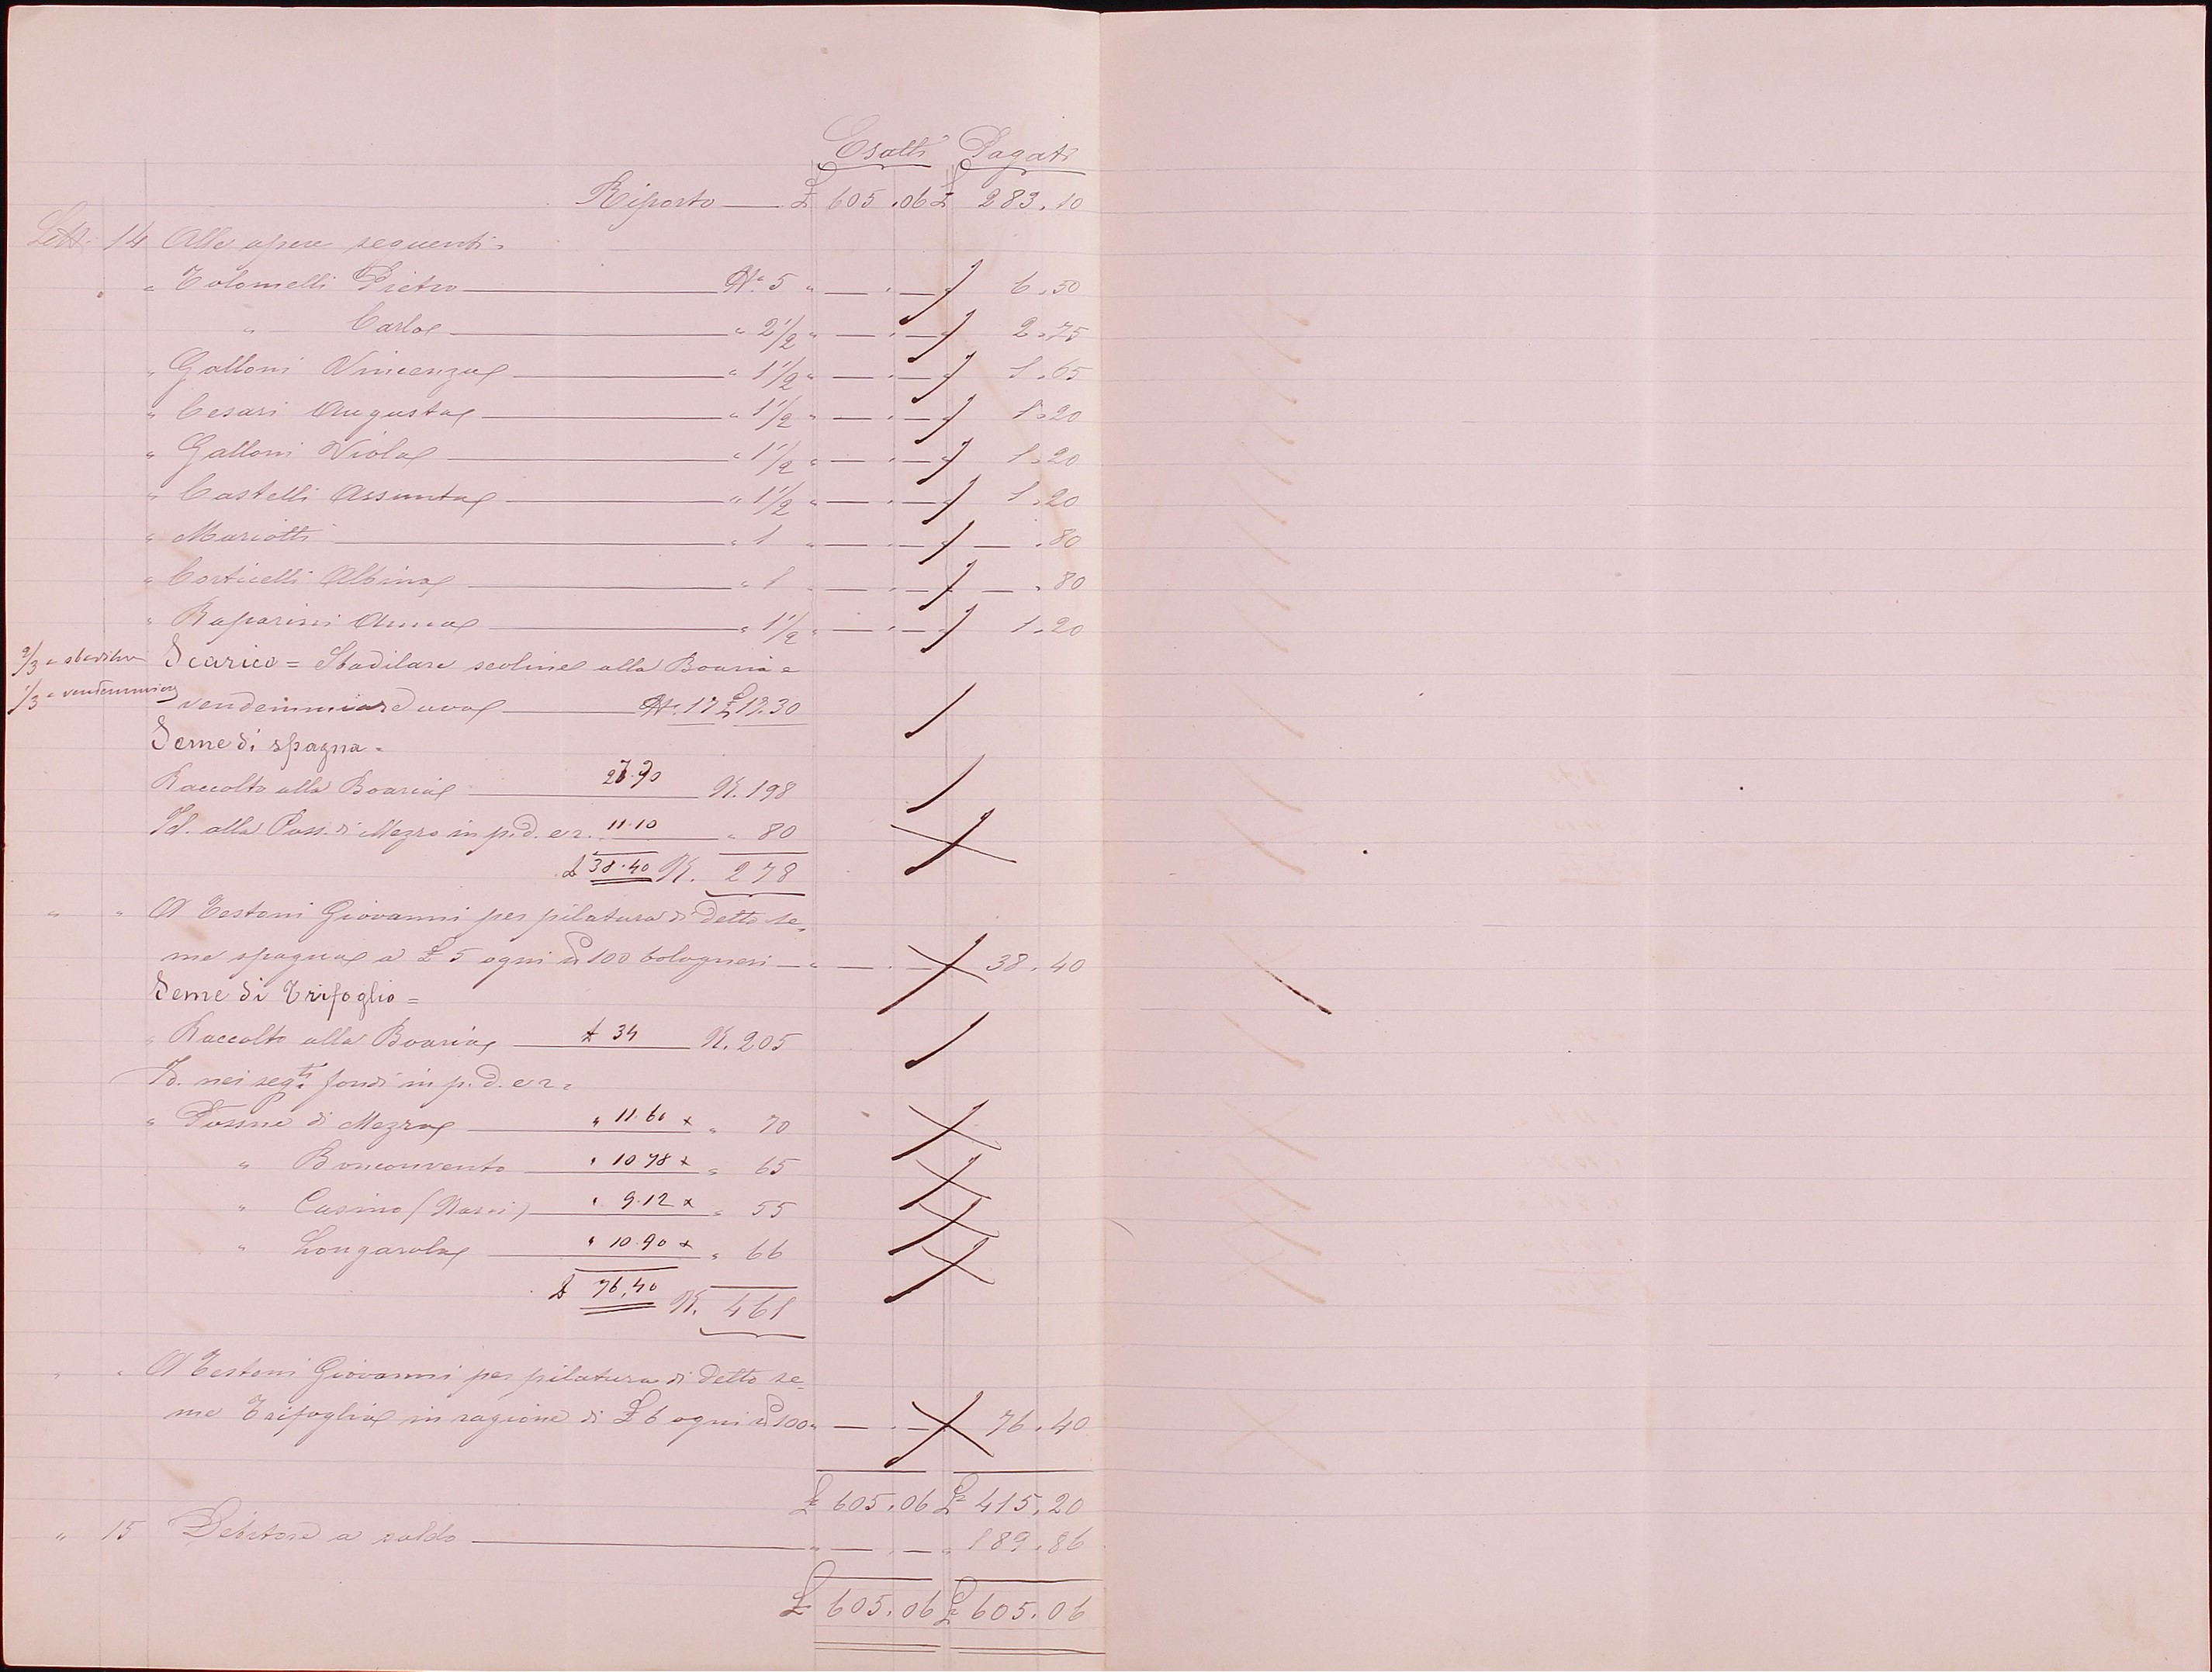 Esatti Pagati
Riporto £ 605.06 £ 283.10
Sett. 14 Alle opere seguenti.
" Tolomelli Pietro N° 5 " — . — " 6.50
" Carlo " 2 1/2 " — . — " 2.75
" Galloni Vincenzo " 1 1/2 " — . — " 1.65
" Cesari Augusta " 1 1/2 " — . — " 1.20
" Galloni Viola " 1 1/2 " — . — " 1.20
" Castelli Assunta " 1 1/2 " — . — " 1.20
" Mariotti " 1 " — . — " — .80
" Corticelli Albina " 1 " — . — " — .80
" Raparini Anna " 1 1/2 " — . — " 1.20
2/3 a
Scarico = Sbadilare scoline alla Boaria e
1/3 a
vendemmiare uva N° 17 £ 17.30
Seme di spagna =
Raccolto alla Boaria 27.90 K. 198
Id. alla Poss. di Mezzo in p. d. e r. 11.10 " 80
£ 38.40 K. 278
" " A Testoni Giovanni per pilatura di detto se-
me spagna a £ 5 ogni 100 bolognesi " — . — 38.40
Seme di Trifoglio =
" Raccolto alla Boaria £ 34 K. 205
Id. nei seg.ti fondi in p. d. e r. =
" di Mezzo " 11.60 x " 70
" Bonconvento " 10.78 x " 65
" Casino ( ) " 9.12 x " 55
" Longarola " 10.90 x " 66
£ 76,40 K. 461
" " A Testoni Giovanni per pilatura di detto se-
me Trifoglio in ragione di £ 6 ogni 100 " — . — 76.40
£ 605.06 £ 415.20
" 15 Debitore a saldo " — . — " 189.86
£ 605.06 £ 605.06